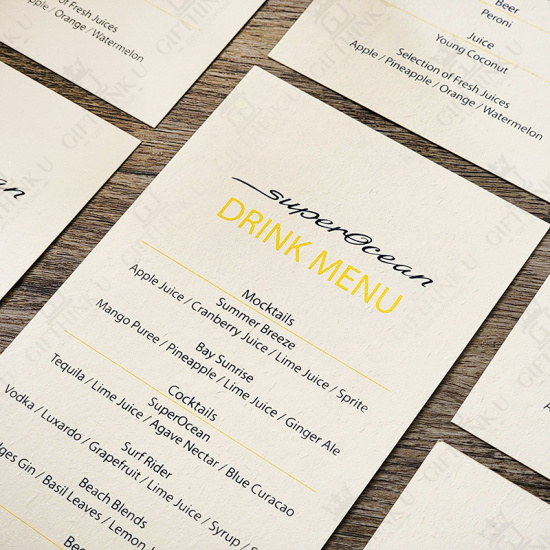 Fresh Juices
Apple / Orange / Watermelon
Beer
Peroni
Juice
Young Coconut
Selection of Fresh Juices
Apple / Pineapple / Orange / Watermelon
superOcean
DRINK MENU
Mocktails
Summer Breeze
Apple Juice / Cranberry Juice / Lime Juice / Sprite
Bay Sunrise
Mango Puree / Pineapple / Lime Juice / Ginger Ale
Cocktails
SuperOcean
Tequila / Lime Juice / Agave Nectar / Blue Curacao
Surf Rider
Vodka / Luxardo / Grapefruit / Lime Juice / Syrup /
Beach Blends
Gin / Basil Leaves / Lemon
GIFTHINK U